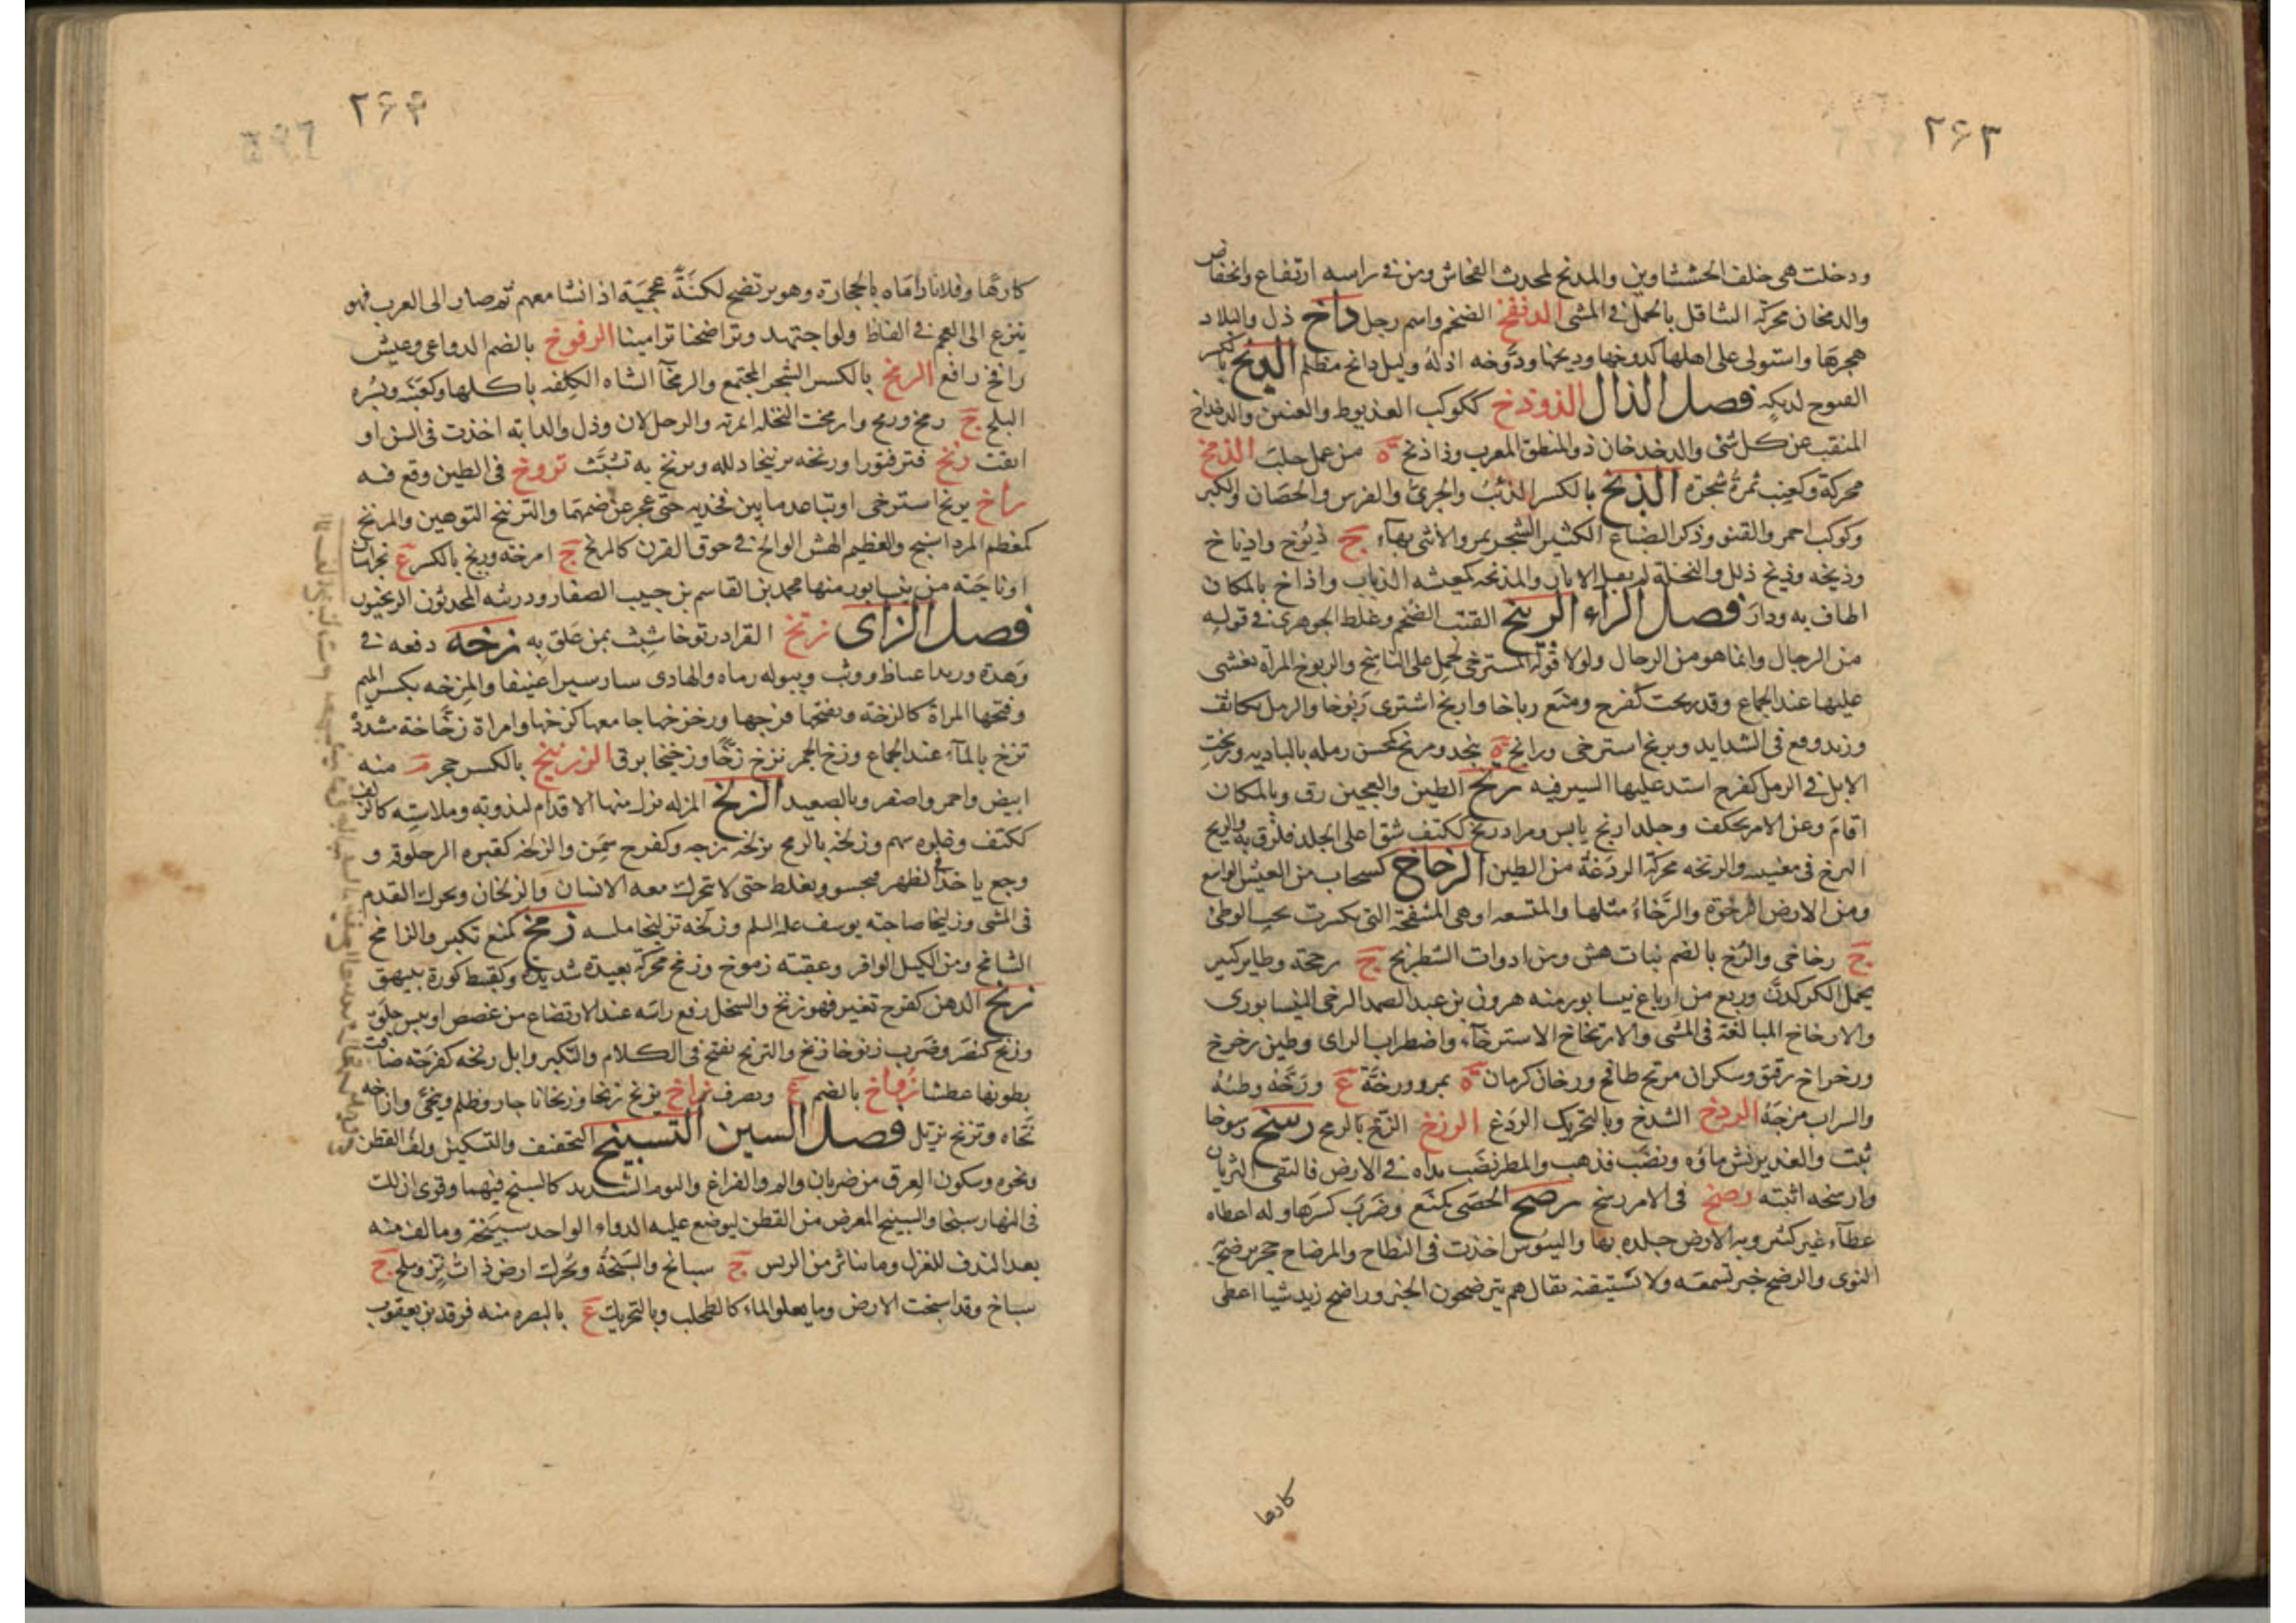 ٢۶٣
ودخلت هى خلف الخششاوين والمدنخ لمحدث الفحاش ومن فى راسه ارتفاع وانخفاض
والدمخان محركة التثاقل بالحمل فى المشى الدنفخ الضخم واسم رجل داخ ذل والبلاد
هجرها واستولى على اهلها كدوخها وديخها ودوخه اذله وليل دائخ مظلم الديخ بالكسر
القنوح لديكه فصل الذال الذوذخ ككوكب العذيوط والعنين والذخداخ
المنقب عن كل شئ والذخذخان ذو المنطق المعرب وذاذيخ ة من عمل حلب الذمخ
محركة وكعنب ثمرة شجرة الذيخ بالكسر الذئب والجرئ والفرس والحصان والكبر
وكوكب احمر والقنو وذكر الضباع الكثير الشعر والانثى بهاء ج ذيوخ واذياخ
وذيخه وذيخ ذلل والنخلة لم يقبل الابار والمذيخه كمعيشه الذياب واذاخ بالمكان
اطاف به ودار فصل الراء الربيخ القتب الضخم وغلط الجوهرى فى قوله
من الرجال وانما هو من الرحال ولولا قوله المسترخى لحمل على الناسخ والربوخ المراة يغشى
عليها عند الجماع وقد ربخت كفرح ومنع رباخا واربخ اشترى ربوخا والرمل تكاثف
وزيد وقع فى الشدايد وتربخ استرخى ورابخ ة بنجد ومربخ كمحسن رمله بالباديه وربخت
الابل فى الرمل كفرح اشتد عليها السير فيه رتخ الطين والعجين رق وبالمكان
اقام وعن الامر بحكف وجلد ارتخ يابس وقراد رتخ ككتف شق اعلى الجلد فلزق به والرتخ
البزغ فى معنييه والرتخه محركة الردغة من الطين الرخاخ كسحاب من العيش الواسع
ومن الارض الرخوة والرخاء مثلها والمتسعه او هى المنتفخة التى تكسرت تحت الوطئ
ج رخاخى والرخ بالضم نبات هش ومن ادوات الشطرنج ج رخخة وطاير كبير
يحمل الكركدن وربع من ارباع نيسابور منه هرون بن عبد الصمد الرخى النيسابورى
والارخاخ المبالغة فى المشى والارتخاخ الاسترخاء واضطراب الراى وطين رخرخ
ورخراخ رقيق وسكران مرتخ طافح ورخان كرمان ة بمرو ورخة ع ورخه وطئه
والسراب مزجه الردخ الشدخ وبالتحريك الردغ الرزخ الزخ بالرمح رسخ رسوخا
ثبت والغدير نش ماؤه ونضب فذهب والمطر نضب نداه فى الارض فالتقى الثريان
وارسخه اثبته رصخ فى الامر رسخ رضخ الحصى كمنع وضرب كسرها وله اعطاه
عطاء غير كثير وبه الارض جلده بها والتيوس اخذت فى النطاح والمرضاخ حجر يرضخ به
النوى والرضخ خبر تسمعه ولا تستيقنه يقال هم يترضخون الخبر وراضخ زيد شيا اعطى
كارها
٢۶۴
كارها وفلانا راماه بالحجارة وهو يرتضخ لكنة عجمية اذا نشا معهم ثم صار الى العرب فهو
ينزع الى العجم فى الفاظ ولو اجتهد وتراضخنا ترامينا الرفوخ بالضم الدواهى وعيش
رافخ رافع الرمخ بالكسر الشجر المجتمع والرمخاء الشاه الكلفه باكلها وكعنبه وبسره
البلح ج رمخ ورمخ وارمخت النخلة اثمرته والرجل لان وذل والدابه اخذت فى السن او
انقت رنخ فتر فتورا ورنخه ترنيخا ذلله وترنخ به تشبث تروخ فى الطين وقع فيه
راخ يريخ استرخى او تباعد ما بين فخذيه حتى عجز عن ضمهما والتريخ التوهين والمريخ
كمعظم المرداسنج والعظيم الهش الوالج فى جوف القرن كالمريخ ج امرخه وريخ بالكسر ع بخراسان
او ناحية من نيسابور منها محمد بن القاسم بن حبيب الصفار وذريته المحدثون الريخيون
فصل الزاى زتخ القراد زتوخا شبث بمن علق به زخه دفعه فى
وهدة وزيد اغتاظ ووثب وببوله رماه والحادى سار سيرا عنيفا والمزخه بكسر الميم
وفتحها المراة كالزخة وبفتحها فرجها وزخزخها جامعها كزخها وامراة زخاخة مشددة
تزخ بالماء عند الجماع وزخ الجمر يزخ زخا وزخيخا برق الزرنيخ بالكسر حجر م منه
ابيض واحمر واصفر وبالصعيد الزلخ المزله تزل منها الاقدام لنذوته وملاسته كالزلخ
ككتف وغلوه سهم وزلخه بالرمح يزلخه زجه وكفرح سمن والزلخه كقبره الزحلوقه و
وجع ياخذ فى الظهر فيجسو ويغلظ حتى لا يتحرك معه الانسان والزلخان ويحرك التقدم
فى المشى وزليخا صاحبة يوسف عليه السلم وزلخه تزليخا ملسه زمخ كمنع تكبر والزامخ
الشامخ ومن الكيل الوافر وعقبته زموخ وزمخ محركة بعيدة شديدة وكقسط كورة ببيهق
زنخ الدهن كفرح تغير فهو زنخ والسخل رفع راسه عند الارتضاع من غصص او يبس حلق
وزنخ كنصر وضرب زنوخا زنخ والتزنخ التفتح فى الكلام والتكبر وابل زنخه كفرحه ضاقت
بطونها عطشا زواخ بالضم ع ويصرف زاخ يزيخ زيخا وزيخانا جار وظلم وتنحى وازاخه
نحاه وتزيخ تزيل فصل السين التسبيخ التخفيف والتسكين ولف القطن
ونحوه وسكون العرق من ضربان والم والفراغ والنوم الشديد كالسبخ فيهما وقرئ ان لك
فى النهار سبخا والسبيخ المعرض من القطن ليوضع عليه الدواء الواحد سبيخة وما لف منه
بعد الندف للغزل وما تناثر من الريش ج سبائخ والسبخة وتحرك ارض ذات نز وملح ج
سباخ وقد اسبخت الارض وما يعلو الماء كالطحلب وبالتحريك ع بالبصره منه فرقد بن يعقوب